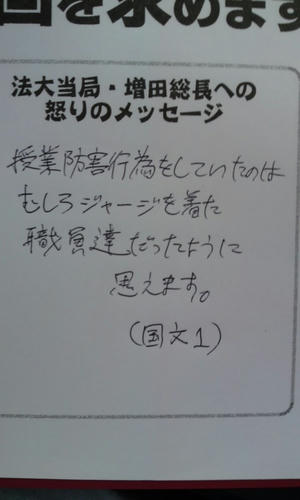 回を求めます
法大当局・増田総長への
怒りのメッセージ
授業防害行為をしていたのは
むしろジャージを着た
職員達だったように
思えます。
(国文1)